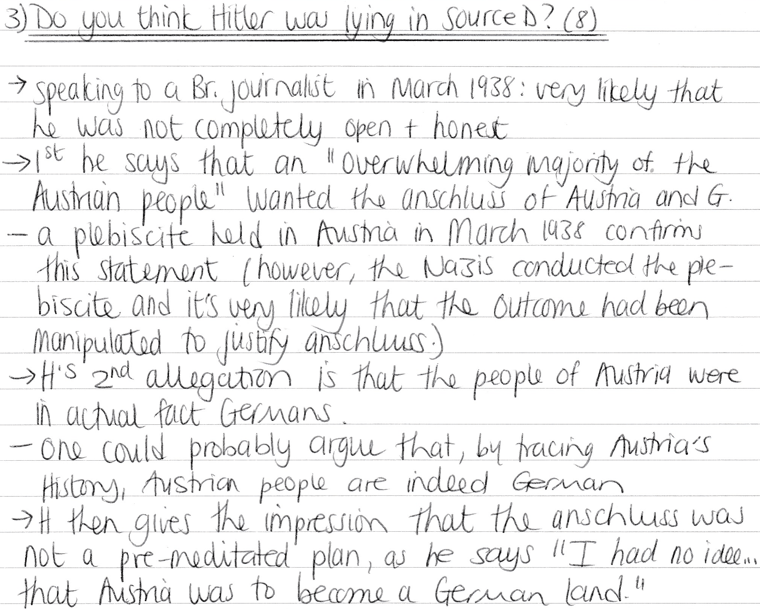 3) Do you think Hitler was lying in source D? (8)
→ speaking to a Br. journalist in March 1938: very likely that
he was not completely open + honest
→ 1st he says that an "overwhelming majority of the
Austrian people" wanted the anschluss of Austria and G.
– a plebiscite held in Austria in March 1938 confirms
this statement (however, the Nazis conducted the ple-
biscite and it's very likely that the outcome had been
manipulated to justify anschluss.)
→ H's 2nd allegation is that the people of Austria were
in actual fact Germans.
– one could probably argue that, by tracing Austria's
History, Austrian people are indeed German
→ H then gives the impression that the anschluss was
not a pre-meditated plan, as he says "I had no idee...
that Austria was to become a German land."